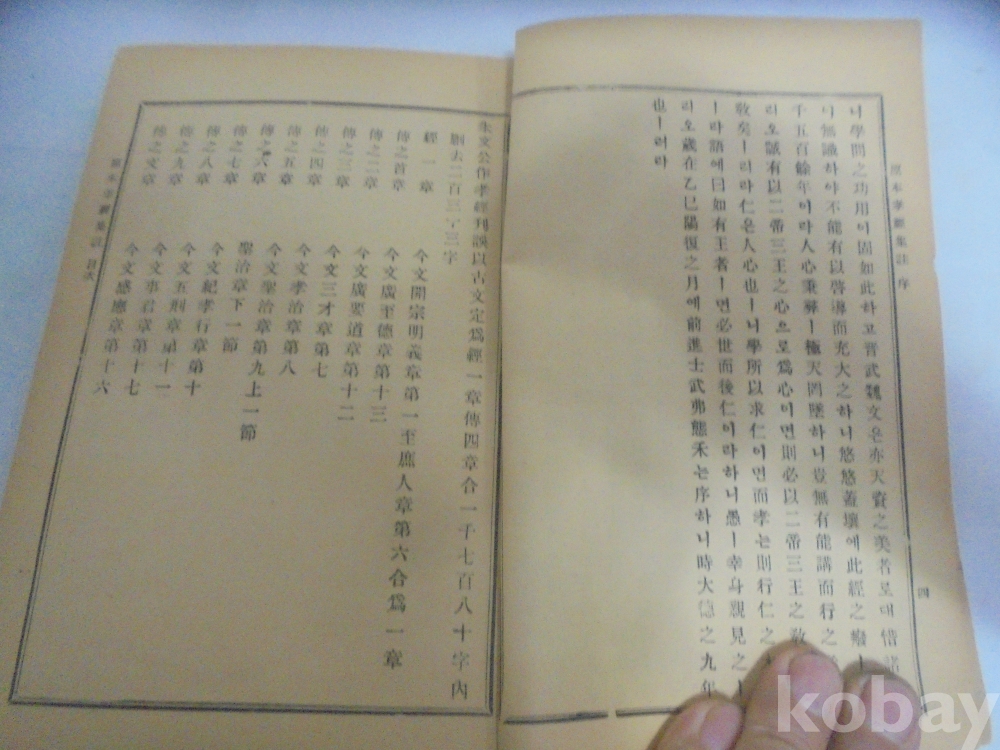 原本孝經集註 序
四
니學問之功用이固如此하고晋武魏文은亦天資之美者로대惜諸
니無識하야不能有以啓導而充大之하니悠悠蓋壤에此經之廢ㅣ
千五百餘年이라人心秉彝ㅣ極天罔墜하니豈無有能講而行之
리오誠有以二帝三王之心으로爲心이면則必以二帝三王之敎
敎矣ㅣ리라仁은人心也ㅣ니學所以求仁이면而孝는則行仁之
ㅣ라語에曰如有王者ㅣ면必世而後仁이라하니愚ㅣ幸身親見之ㅣ
리오歲在乙巳陽復之月에前進士武弗熊禾는序하니時大德之九年
也ㅣ러라
朱文公作孝經刊誤以古文定爲經一章傳四章合一千七百八十字內
刪去二百三十三字
經一章 今文開宗明義章第一至庶人章第六合爲一章
傳之首章 今文廣至德章第十三
傳之二章 今文廣要道章第十二
傳之三章 今文三才章第七
傳之四章 今文孝治章第八
傳之五章 今文聖治章第九上一節
傳之六章 聖治章下一節
傳之七章 今文紀孝行章第十
傳之八章 今文五刑章第十一
傳之九章 今文事君章第十七
傳之文章 今文感應章第十六
原本孝經集註 目次
kobay